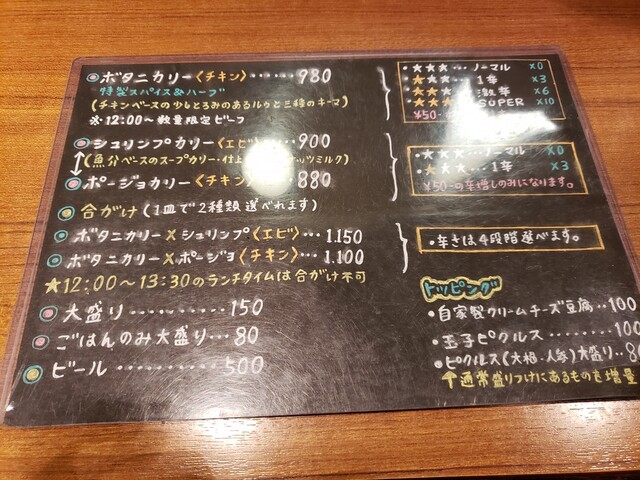 ボタニカリー〈チキン〉・・・・・・980
特製スパイス&ハーブ
(チキンベースの少しとろみのあるルゥと三種のキーマ)
※12:00〜数量限定ビーフ
シュリンプカリー〈エビ〉・・・900
(魚介ベースのスープカリー・仕上 ナッツミルク)
ポージョカリー〈チキン〉・・・880
合がけ(1皿で2種類選べれます)
ボタニカリー×シュリンプ〈エビ〉・・・1.150
ボタニカリー×ポージョ〈チキン〉・・・1.100
★12:00〜13:30のランチタイムは合がけ不可
大盛り・・・・・・・・・150
ごはんのみ大盛り・・・80
ビール・・・・・・・・・・500
・★★★・・・ノーマル ×0
・★★★・・・1辛 ×3
・★★★・・・激辛 ×6
・★★★ SUPER ×10
¥50-
・★★★・・・ノーマル ×0
・★★★・・・1辛 ×3
¥50-の辛増しのみになります。
・辛さは4段階選べます。
トッピング
・自家製クリームチーズ豆腐・・100
・玉子ピクルス・・・・・・・・・100
・ピクルス(大根・人参)大盛り・・
↑通常盛りつけにあるものを増量